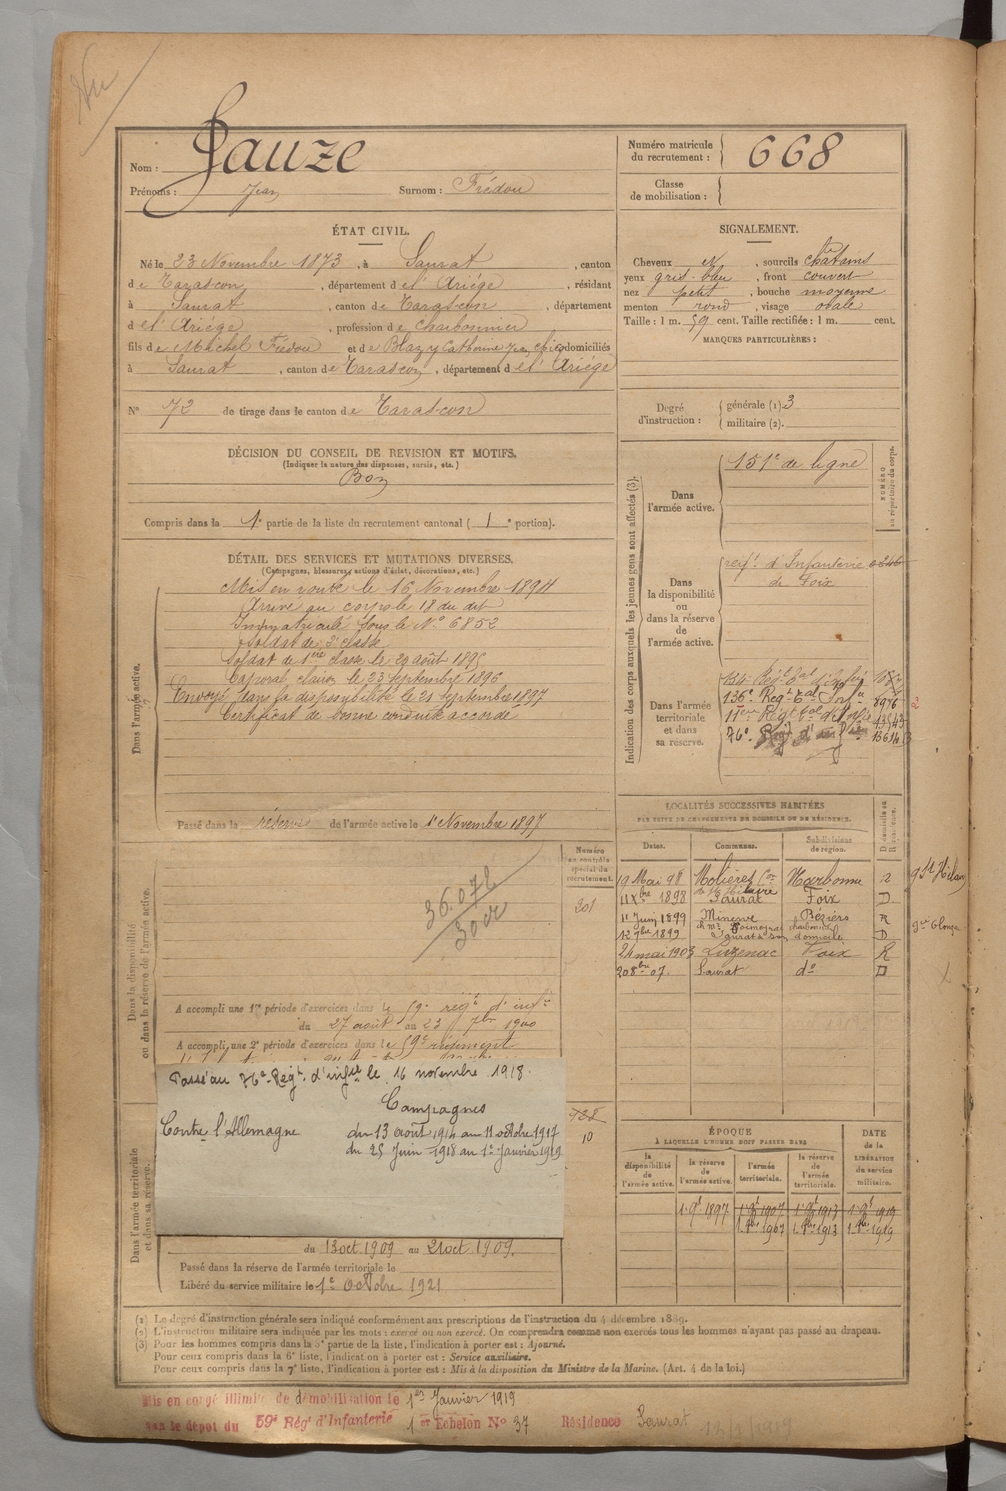 Nom : Sauze
Prénoms : Jean Surnom : Frédou
Numéro matricule du recrutement : 668
Classe de mobilisation :
ÉTAT CIVIL.
Né le 23 Novembre 1873, à Saurat, canton
de Tarascon, département de l'Ariége, résidant
à Saurat, canton de Tarascon, département
de l'Ariége, profession de charbonnier
fils de Michel Frédou et de Blazy Catherine domiciliés
à Saurat, canton de Tarascon, département de l'Ariége
N° 72 de tirage dans le canton de Tarascon
SIGNALEMENT.
Cheveux et, sourcils châtains
yeux gris-bleu, front couvert
nez petit, bouche moyenne
menton rond, visage ovale
Taille : 1 m. 59 cent. Taille rectifiée : 1 m. cent.
MARQUES PARTICULIÈRES :
Degré d'instruction : générale (1) 3
militaire (2).
DÉCISION DU CONSEIL DE REVISION ET MOTIFS.
(Indiquer la nature des dispenses, sursis, etc.)
Bon
Compris dans la 1e partie de la liste du recrutement cantonal ( 1e portion).
DÉTAIL DES SERVICES ET MUTATIONS DIVERSES.
(Campagnes, blessures, actions d'éclat, décorations, etc.)
Dans l'armée active.
Mis en route le 16 Novembre 1894
Arrivé au corps le 18 du dit
Immatriculé sous le N° 6852
Soldat de 2e classe
Soldat de 1ère classe le 29 août 1895
Caporal clairon le 23 septembre 1896
Envoyé dans la disponibilité le 21 septembre 1897
Certificat de bonne conduite accordé
Passé dans la réserve de l'armée active le 1er Novembre 1897
Indication des corps auxquels les jeunes gens sont affectés (3).
NUMÉRO au répertoire du corps.
Dans l'armée active.
151e de ligne
Dans la disponibilité ou dans la réserve de l'armée active.
regt. d'Infanterie
de Foix
Dans l'armée territoriale et dans sa réserve.
136e Regt tal Infie 8976
11em Régt tal d'Infie
76e
LOCALITÉS SUCCESSIVES HABITÉES
PAR SUITE DE CHANGEMENTS DE DOMICILE OU DE RÉSIDENCE.
Dates. Communes. Subdivisions de région. D domicile ou R résidence.
19 Mai 98 Molières Narbonne R
11 Xbre 1898 Saurat Foix D
11 Juin 1899 Minerve Béziers R
12 7bre 1899 Saurat domicile D
24 mai 1903 Luzenac Foix R
20 8bre 07. Saurat do D
Dans la disponibilité ou dans la réserve de l'armée active.
Numéro au contrôle spécial du recrutement.
201
36.072
A accompli une 1re période d'exercices dans le 59e régt d'infie
du 27 août au 23 7bre 1900
A accompli une 2e période d'exercices dans le 59e régiment
Passé au 76e Regt. d'infie le 16 novembre 1918.
Campagnes
Contre l'Allemagne du 13 août 1914 au 11 octobre 1917
du 25 Juin 1918 au 1er Janvier 1919
10
Dans l'armée territoriale et dans sa réserve.
du 13 oct. 1909 au 21 oct. 1909.
Passé dans la réserve de l'armée territoriale le
Libéré du service militaire le 1er Octobre 1921
ÉPOQUE
À LAQUELLE L'HOMME DOIT PASSER DANS
DATE de la LIBÉRATION du service militaire.
la disponibilité de l'armée active. la réserve de l'armée active. l'armée territoriale. la réserve de l'armée territoriale.
1 9bre 1897 1 9bre 1907 1 9bre 1913 1 9bre 1919
1 8bre 1907 1 8bre 1913 1 8bre 1919
(1) Le degré d'instruction générale sera indiqué conformément aux prescriptions de l'instruction du 4 décembre 1889.
(2) L'instruction militaire sera indiquée par les mots : exercé ou non exercé. On comprendra comme non exercés tous les hommes n'ayant pas passé au drapeau.
(3) Pour les hommes compris dans la 5e partie de la liste, l'indication à porter est : Ajourné.
Pour ceux compris dans la 6e liste, l'indication à porter est : Service auxiliaire.
Pour ceux compris dans la 7e liste, l'indication à porter est : Mis à la disposition du Ministre de la Marine. (Art. 4 de la loi.)
Mis en congé illimité de démobilisation le 1er Janvier 1919
par le dépôt du 59e Régt d'Infanterie 1er Echelon N° 37 Résidence Saurat